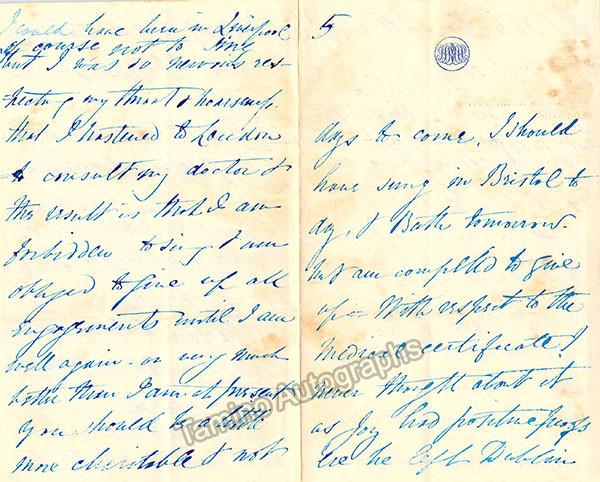 I could have been in Liverpool
of course not to sing
but I was so nervous res-
pecting my throat & hoarseness
that I hastened to London
to consult my doctor &
the result is that I am
forbidden to sing. I am
obliged to give up all
Engagements until I am
well again - or very much
better than I am at present
you should be a little
more charitable & not
5
days to come. I should
have sung in Bristol to
day, & Bath tomorrow.
but am compelled to give
up - With respect to the
Medical certificate I
never thought about it
as Joy had positive proofs
ere he left Dublin
Tamino Autographs